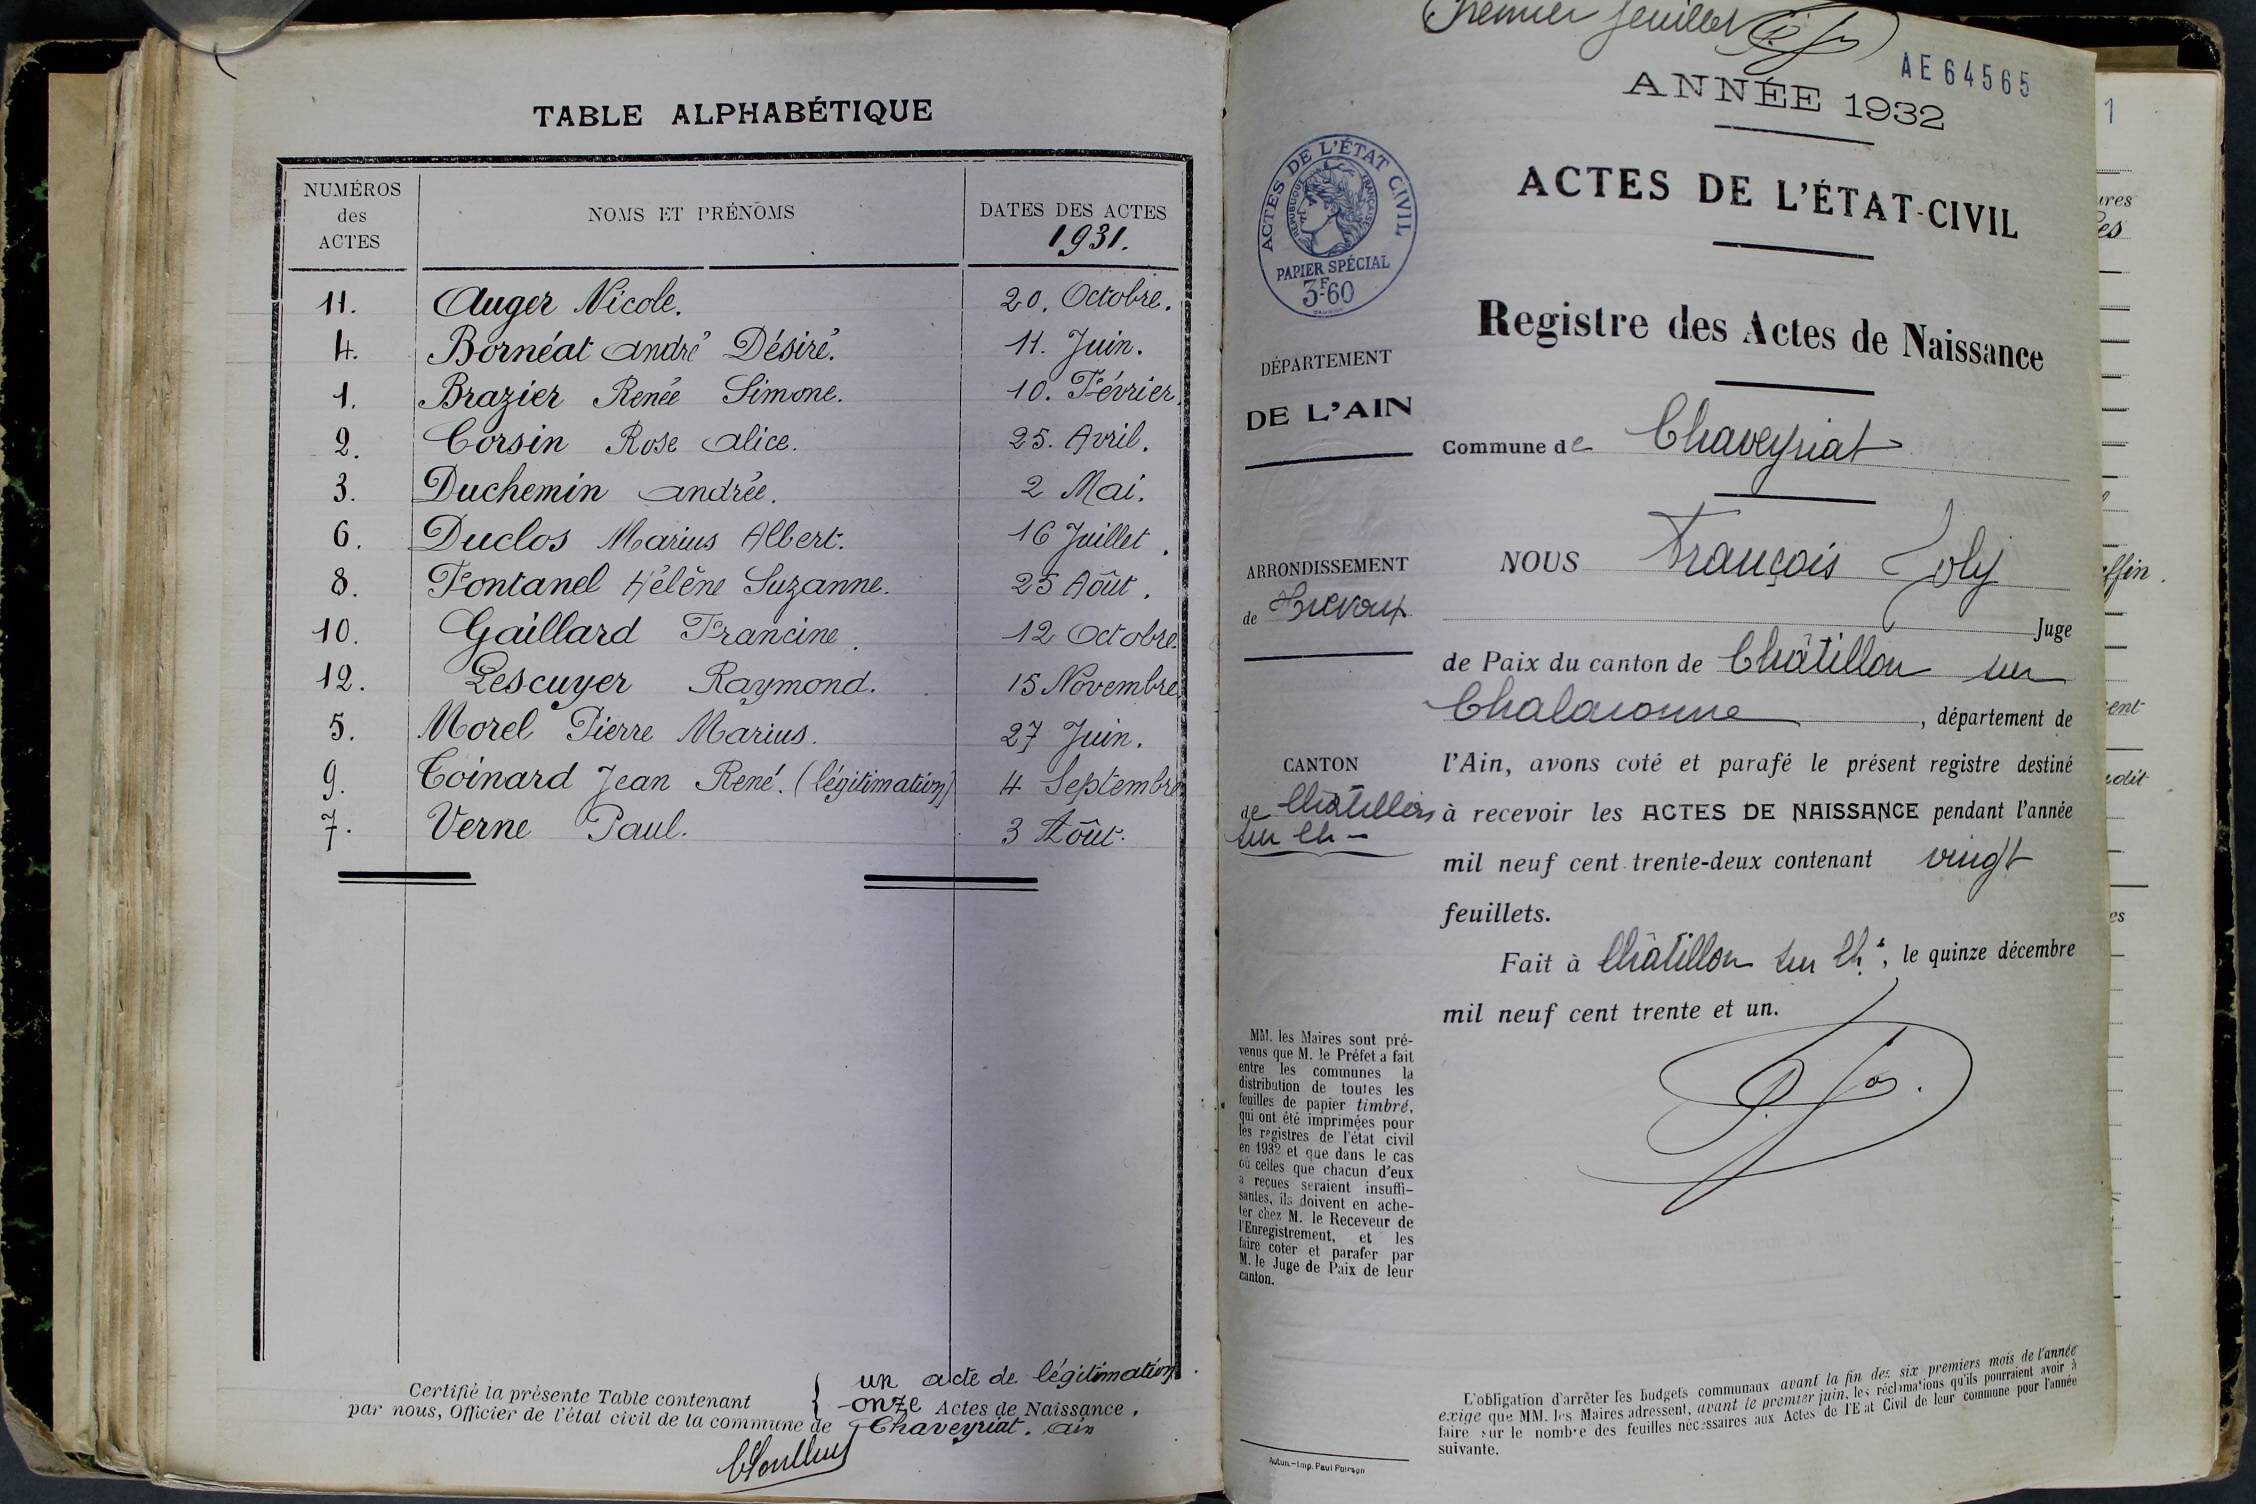 TABLE ALPHABÉTIQUE
NUMÉROS des ACTES | NOMS ET PRÉNOMS | DATES DES ACTES 1931.
11. Auger Nicole. 20. Octobre.
4. Bornéat André Désiré. 11. Juin.
1. Brazier Renée Simone. 10. Février.
2. Corsin Rose Alice. 25. Avril.
3. Duchemin Andrée. 2 Mai.
6. Duclos Marius Albert. 16 Juillet.
8. Fontanel Hélène Suzanne. 25 Août.
10. Gaillard Francine. 12 Octobre.
12. Lescuyer Raymond. 15 Novembre
5. Morel Pierre Marius. 27 Juin.
9. Coinard Jean René. (légitimation) 4 Septembre
7. Verne Paul. 3 Août.
un acte de légitimation.
Certifié la présente Table contenant { onze Actes de Naissance,
par nous, Officier de l'état civil de la commune de Chaveyriat. Ain
Premier feuillet
AE 64565
ANNÉE 1932
ACTES DE L'ÉTAT-CIVIL
Registre des Actes de Naissance
ACTES DE L'ÉTAT CIVIL
RÉPUBLIQUE FRANÇAISE
PAPIER SPÉCIAL
3F60
DÉPARTEMENT
DE L'AIN
Commune de Chaveyriat
ARRONDISSEMENT
de Trévoux
CANTON
de Châtillon
sur Ch-
NOUS François Joly
Juge
de Paix du canton de Châtillon sur
Chalaronne, département de
l'Ain, avons coté et parafé le présent registre destiné
à recevoir les ACTES DE NAISSANCE pendant l'année
mil neuf cent trente-deux contenant vingt
feuillets.
Fait à Châtillon sur Ch., le quinze décembre
mil neuf cent trente et un.
MM. les Maires sont pré-
venus que M. le Préfet a fait
entre les communes la
distribution de toutes les
feuilles de papier timbré,
qui ont été imprimées pour
les registres de l'état civil
en 1932 et que dans le cas
où celles que chacun d'eux
a reçues seraient insuffi-
santes, ils doivent en ache-
ter chez M. le Receveur de
l'Enregistrement, et les
faire coter et parafer par
M. le Juge de Paix de leur
canton.
L'obligation d'arrêter les budgets communaux avant la fin des six premiers mois de l'année
exige que MM. les Maires adressent, avant le premier juin, les réclamations qu'ils pourraient avoir à
faire sur le nombre des feuilles nécessaires aux Actes de l'Etat Civil de leur commune pour l'année
suivante.
Autun.-Imp. Paul Poirson
1